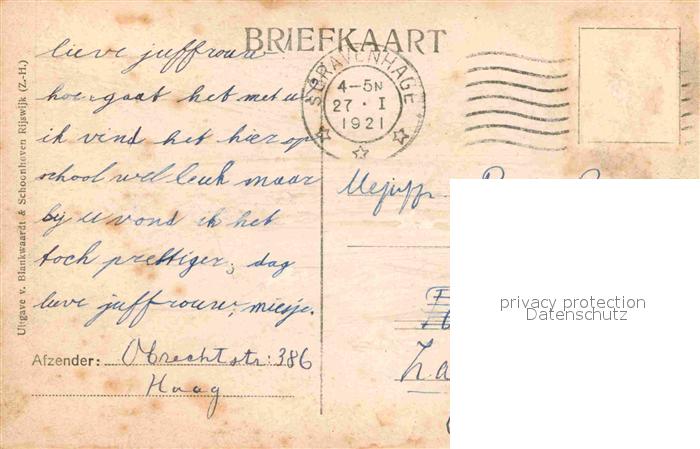 BRIEFKAART
lieve juffrouw
hoe gaat het met u
ik vind het hier op
school wel leuk maar
bij u vond ik het
toch prettiger, dag
lieve juffrouw, miesje.
Afzender: Obrechtstr: 386
Haag
Uitgave v. Blankwaardt & Schoonhoven Rijswijk (Z.-H.)
'S GRAVENHAGE
4-5N
27 · I
1921
Mejuff
privacy protection
Datenschutz